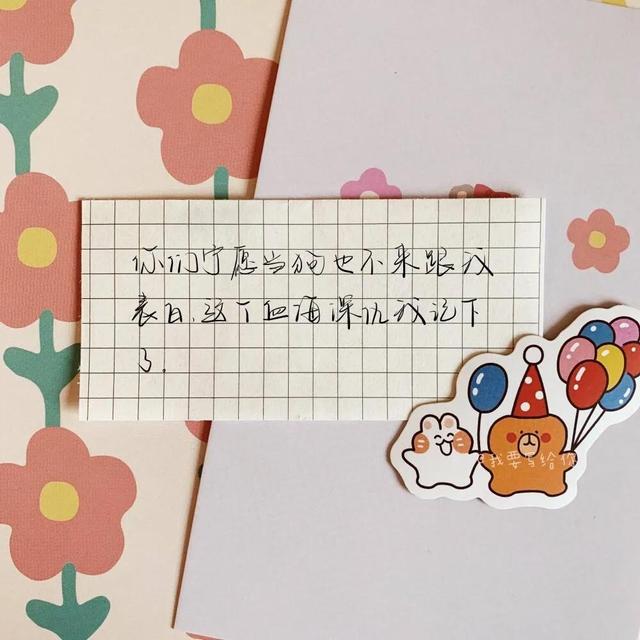 你们宁愿当狗也不来跟我
表白.这个血海深仇我记下
了.
我要写给你